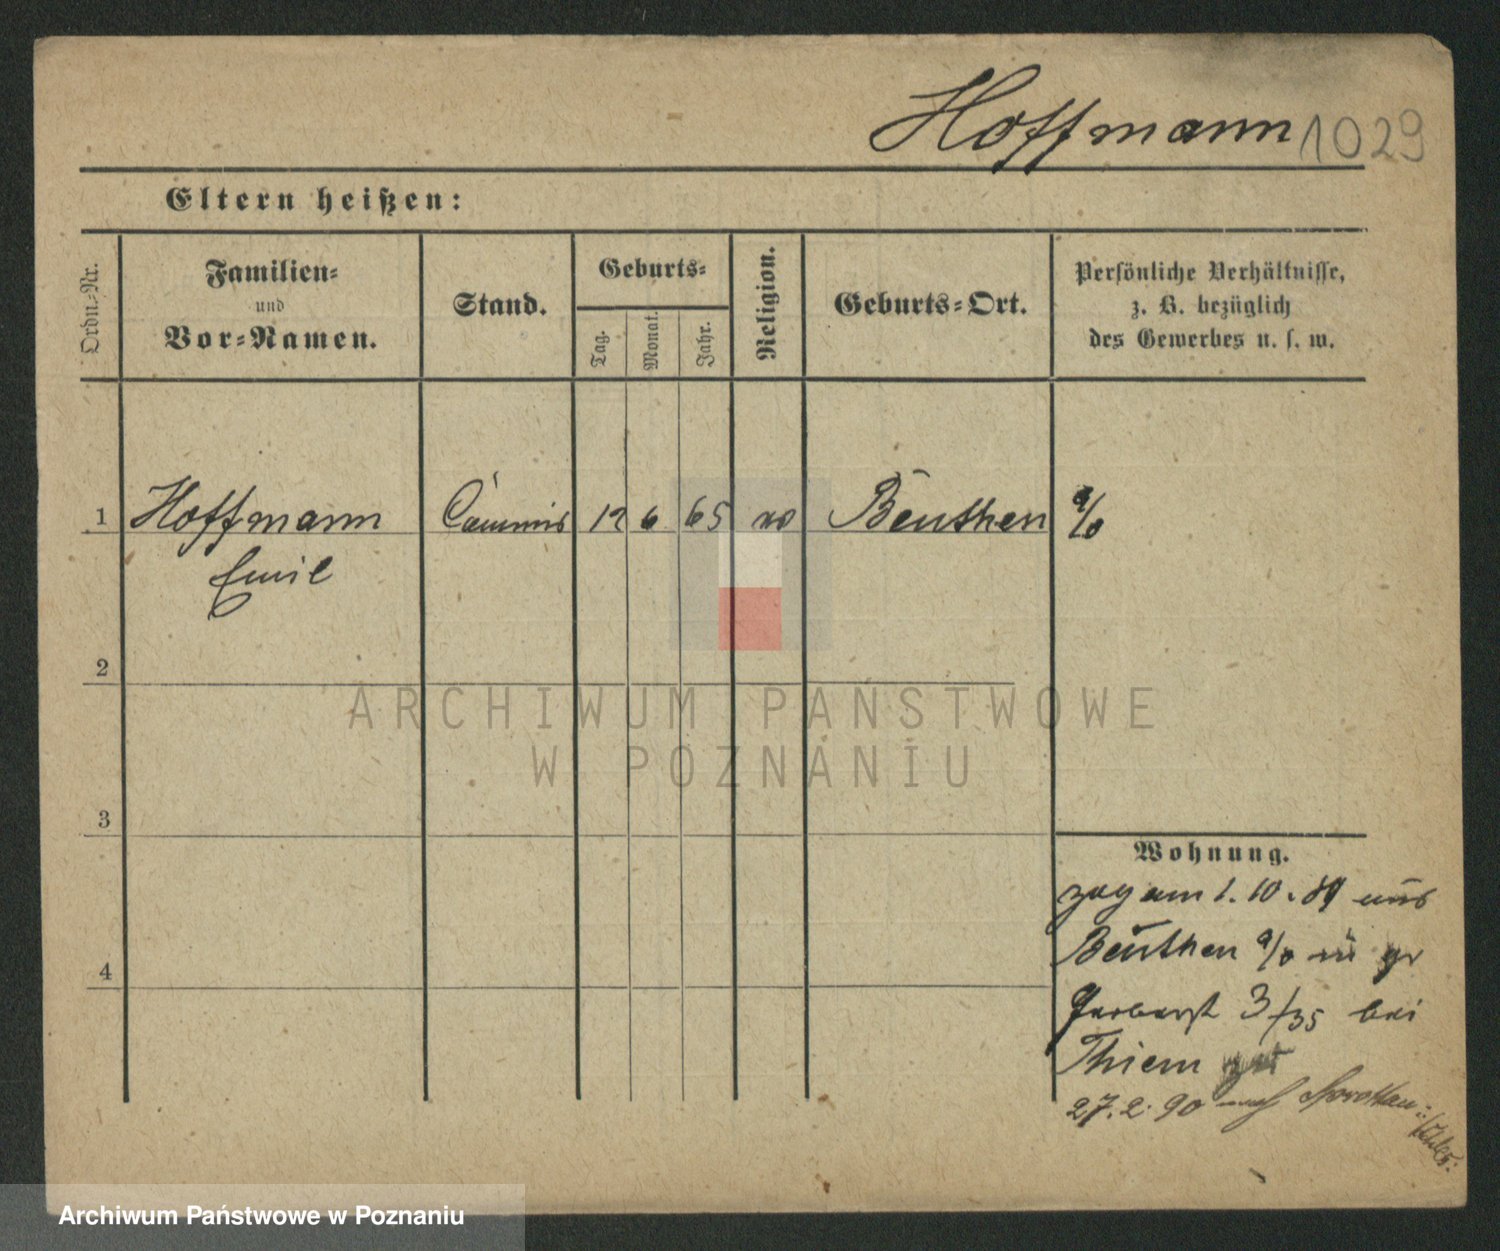 Hoffmann 1029
Eltern heißen:
Ordn.-Nr.
Familien-
und
Vor-Namen.
Stand.
Geburts-
Tag.
Monat.
Jahr.
Religion.
Geburts-Ort.
Persönliche Verhältnisse,
z. B. bezüglich
des Gewerbes u. s. w.
1 Hoffmann Commis 12 6 65 Beuthen a/o
Emil
2
3
4
Wohnung.
zog am 1. 10. 89 aus
Beuthen a/o in gr
Gerberst 3/35 bei
Thiem
27. 2. 90 nach
ARCHIWUM PAŃSTWOWE
W POZNANIU
Archiwum Państwowe w Poznaniu